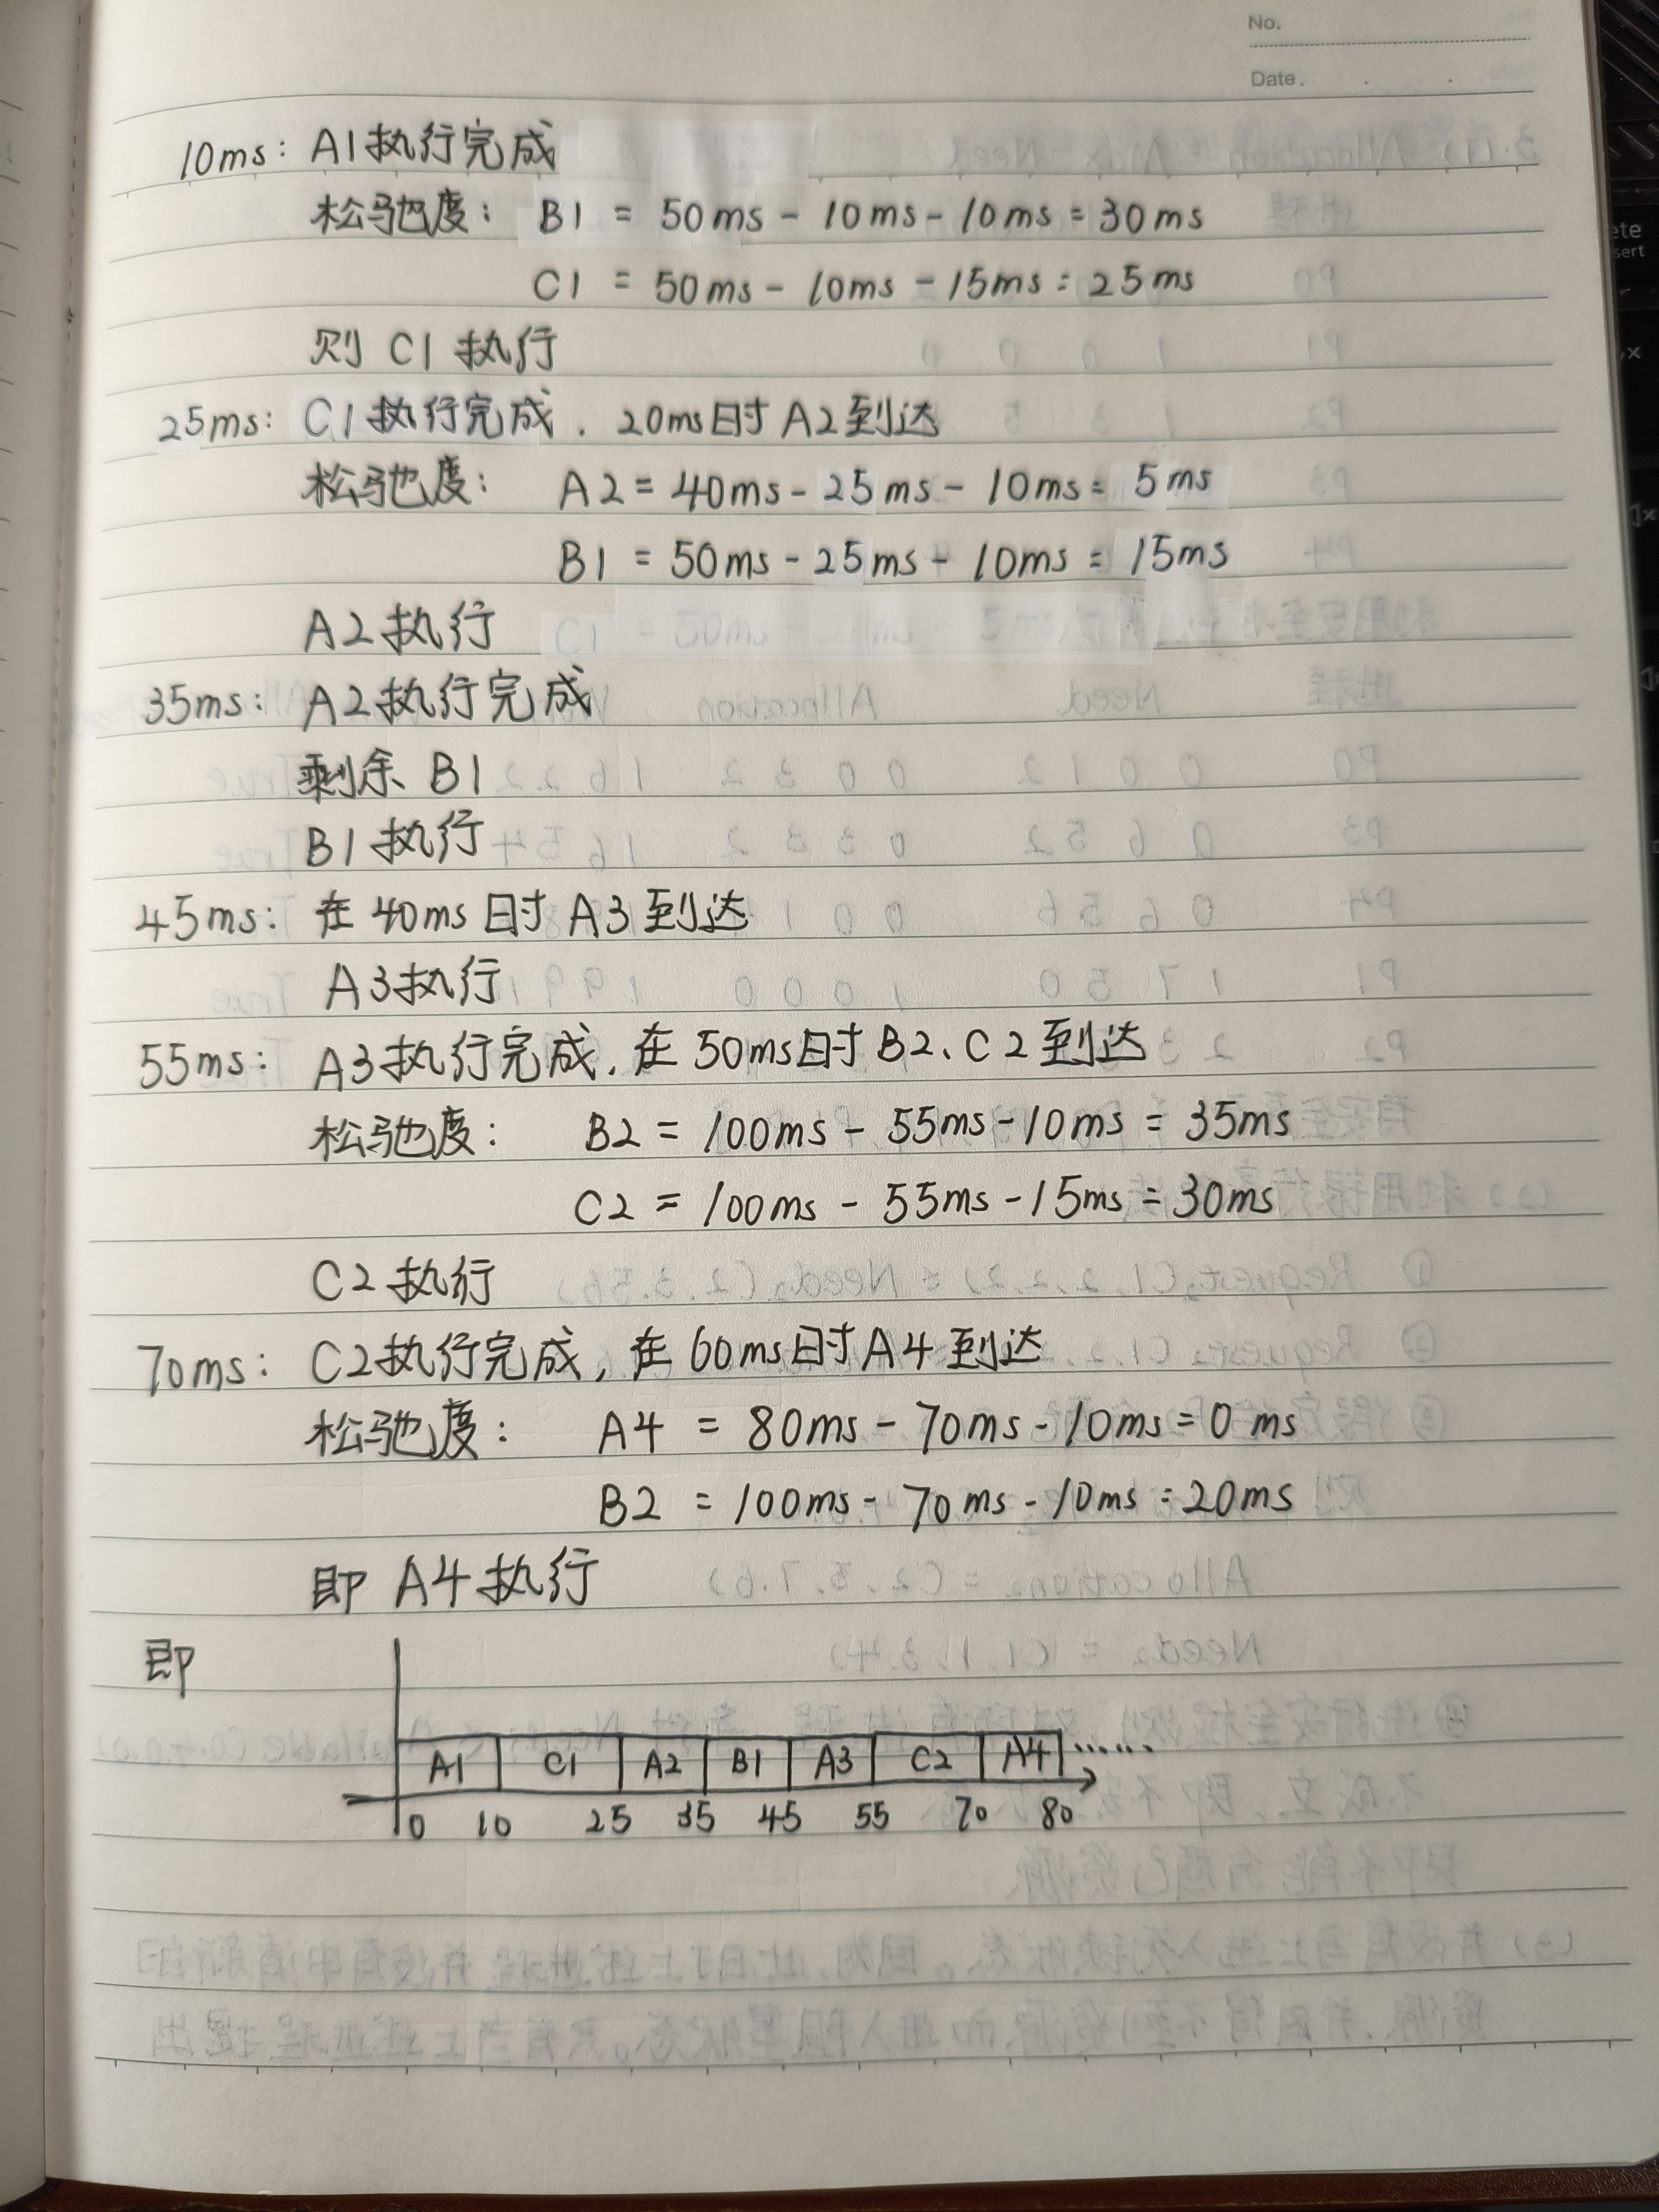 No.
Date.
10ms: A1执行完成
松弛度: B1 = 50ms - 10ms - 10ms = 30ms
C1 = 50ms - 10ms - 15ms = 25ms
则 C1 执行
25ms: C1执行完成. 20ms时 A2到达
松弛度: A2 = 40ms - 25ms - 10ms = 5ms
B1 = 50ms - 25ms - 10ms = 15ms
A2执行
35ms: A2执行完成
剩余 B1
B1执行
45ms: 在 40ms 时 A3 到达
A3执行
55ms: A3执行完成, 在 50ms时 B2、C2到达
松弛度: B2 = 100ms - 55ms - 10ms = 35ms
C2 = 100ms - 55ms - 15ms = 30ms
C2执行
70ms: C2执行完成, 在 60ms时 A4 到达
松弛度: A4 = 80ms - 70ms - 10ms = 0 ms
B2 = 100ms - 70ms - 10ms = 20ms
即 A4执行
即
A1 C1 A2 B1 A3 C2 A4 ......
0 10 25 35 45 55 70 80